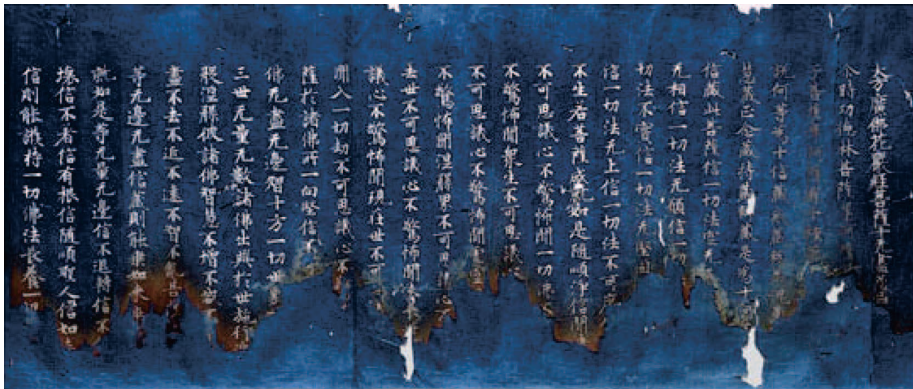 大方廣佛花嚴經菩薩十无盡藏品
尒時功德林菩薩
子菩薩摩訶薩有十種
說何等為十信藏戒藏
慧藏正念藏持藏辯藏是為十何
信藏此菩薩信一切法空信
无相信一切法无願信一切
切法不實信一切法无堅固
信一切法无上信一切法不可
不生若菩薩成就如是隨順淨信聞
不可思議心不驚怖聞一切
不驚怖聞衆生不可思議
不可思議心不驚怖聞
不驚怖聞涅槃界不可思議心
去世不可思議心不驚怖聞未來
議心不驚怖聞現在世不可
聞入一切劫不可思議心不
薩於諸佛所一向堅信不
佛无盡无邊智十方一切世界
三世无量无數諸佛出興於世施行
般涅槃彼諸佛智慧不增不減
盡不去不近不遠不智不亂
等无邊无盡信藏則能乘如來
就如是等无量无邊信不退轉信不
壞信不著信有根信隨順聖人信如
信則能護持一切佛法長養一切